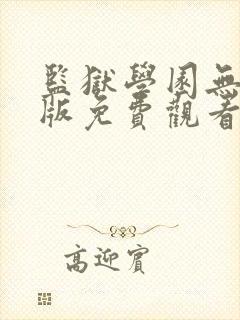 監獄學園無
版免費觀看
高迎賓